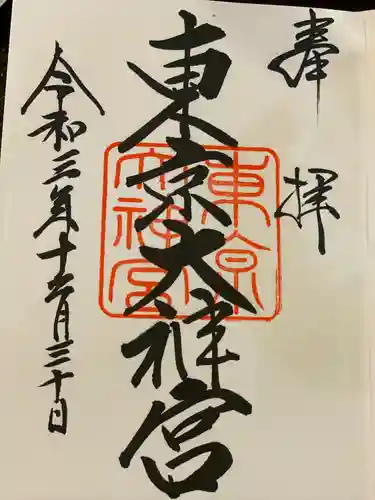 奉拝
東京大神宮
東京
大神宮
令和三年十二月三十日